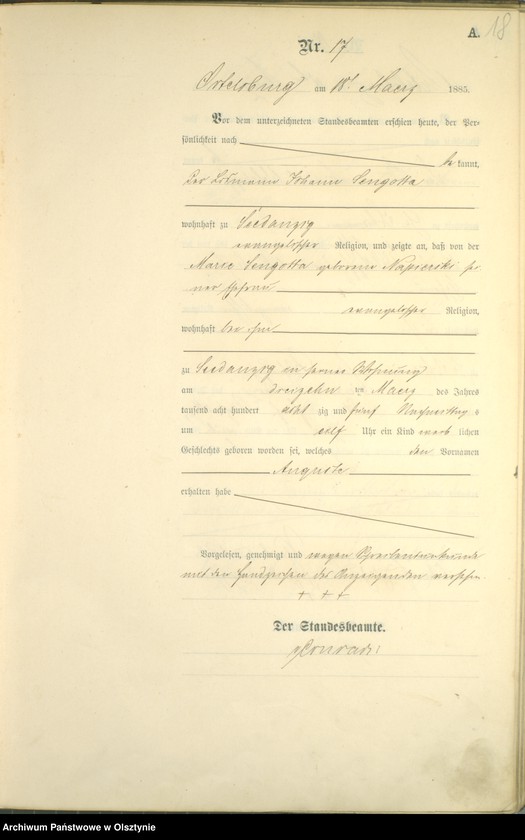 A. 18
Nr. 17
Ortelsburg am 18t Maerz 1885.
Vor dem unterzeichneten Standesbeamten erschien heute, der Per-
sönlichkeit nach
be kannt,
der Losmann Johann Sengotta
wohnhaft zu Seedanzig
evangelischer Religion, und zeigte an, daß von der
Marie Sengotta geborene Napierski sei-
ner Ehefrau
evangelischer Religion,
wohnhaft bei ihm
zu Seedanzig in seiner Wohnung
am dreizehn ten Maerz des Jahres
tausend acht hundert acht zig und fünf Nachmittags
um eilf Uhr ein Kind weib lichen
Geschlechts geboren worden sei, welches den Vornamen
Auguste
erhalten habe
Vorgelesen, genehmigt und wegen Schreibensunkunde
mit den Handzeichen des Anzeigenden versehen.
+ + +
Der Standesbeamte.
Conrad
Archiwum Państwowe w Olsztynie